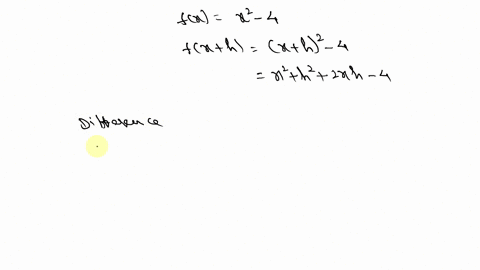 f(x) = x² - 4
f(x+h) = (x+h)² - 4
= x² + h² + 2xh - 4
Difference